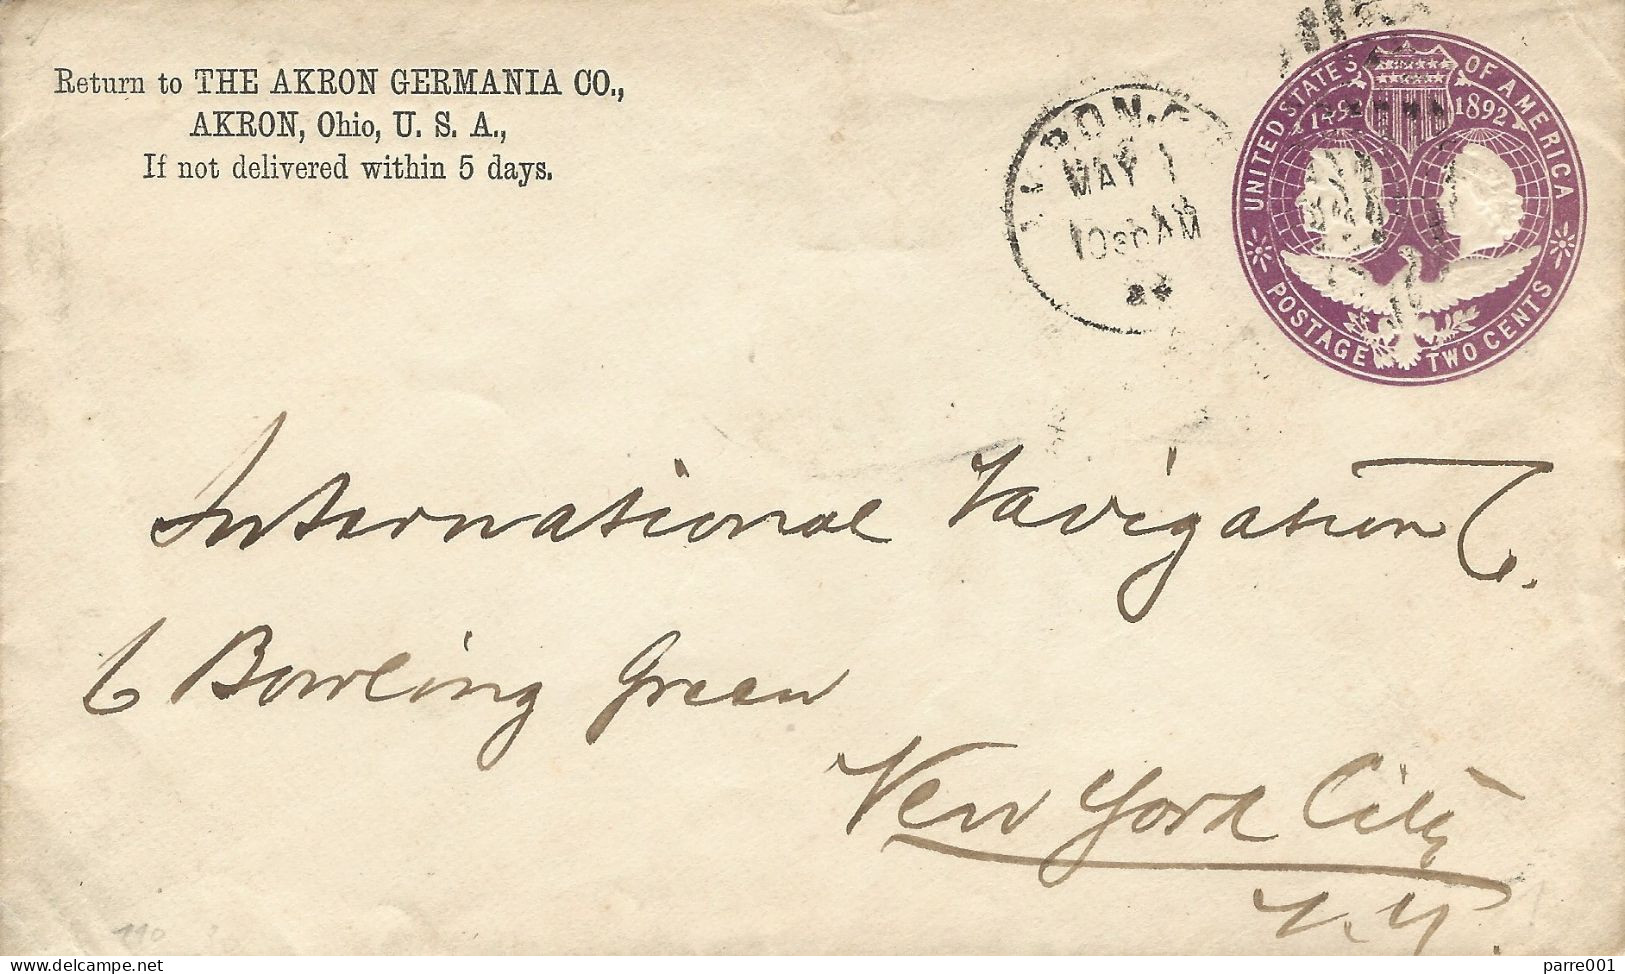 Return to THE AKRON GERMANIA CO.,
AKRON, Ohio, U. S. A.,
If not delivered within 5 days.
AKRON. O
MAY 1
1030 AM
UNITED STATES OF AMERICA
1492 1892
POSTAGE TWO CENTS
International Navigation Co.
6 Bowling Green
New York City
N.Y.
110
delcampe.net
parre001